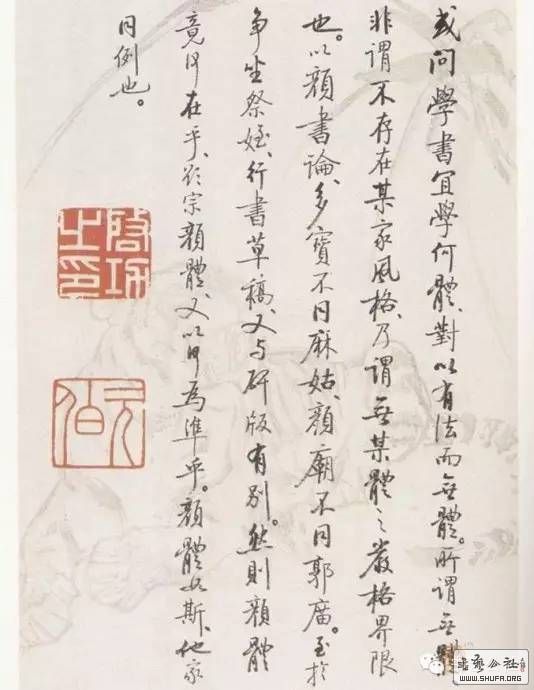 或问學書宜學何體、對以有法而無體。所謂無體
非謂不存在某家風格、乃謂無某體之嚴格界限
也。以顔書論、多寶不同麻姑、顔廟不同郭廣。至於
争坐祭姪、行書草稿、又与碑版有别。然則顔體
竟何在乎、欲宗顔體、又以何爲準乎。顔體如斯、他家
同例也。
啓功之印
元伯
書藝公社
WWW.SHUFA.ORG